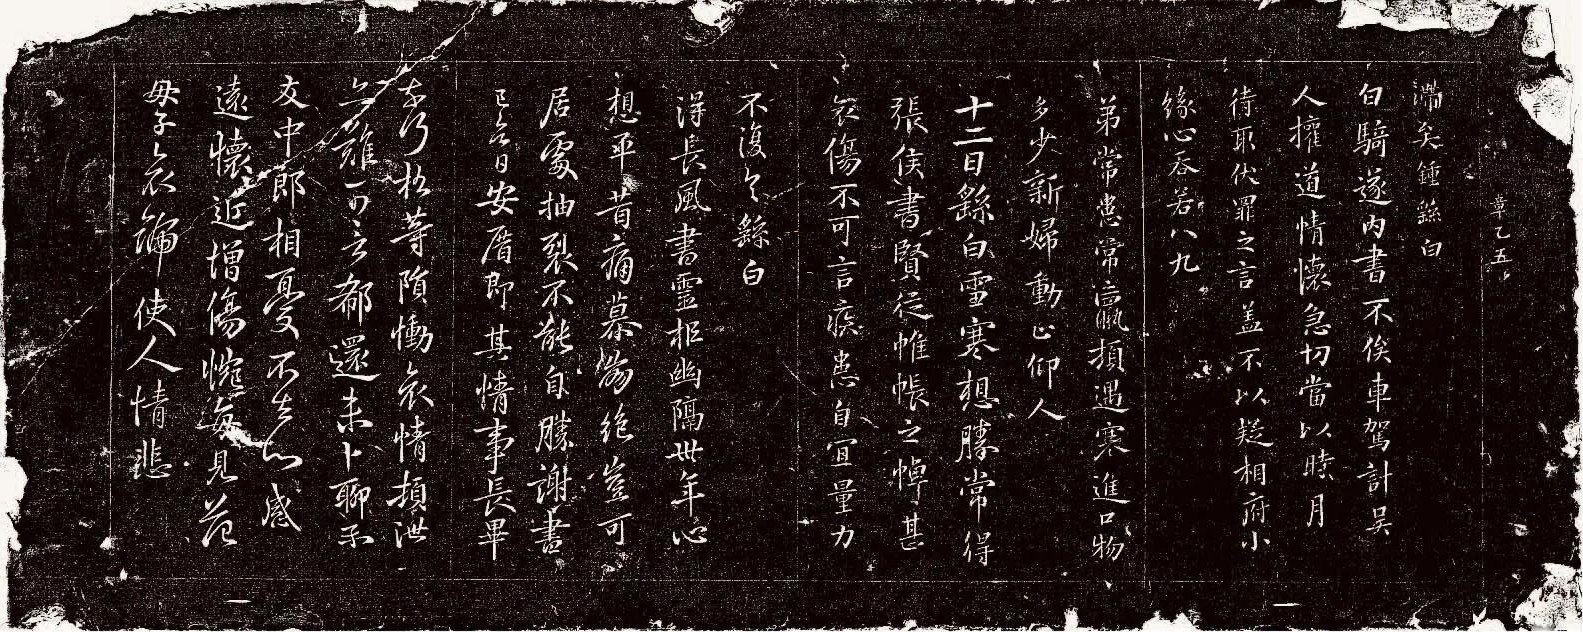 章乙五
滯矣鍾繇白
白騎遂內書不俟車駕計吳
人權道情懷急切當以時月
待取伏罪之言蓋不以疑相府小
緣心吞若八九
弟常患常羸頓遇寒進口物
多少新婦動止仰人
十二日繇白雪寒想勝常得
張侯書賢從帷帳之悼甚
哀傷不可言疾患自宜量力
不復具繇白
得長風書靈柩幽隔卅年心
想平昔痛慕崩絕豈可
居處抽裂不能自勝謝書
已具日安厝即其情事長畢
奈何松等隕慟哀情頓泄
亦難可言郗還未卜聊示
友中郎相憂不去心感
遠懷近增傷惋每見范
母子哀號使人情悲